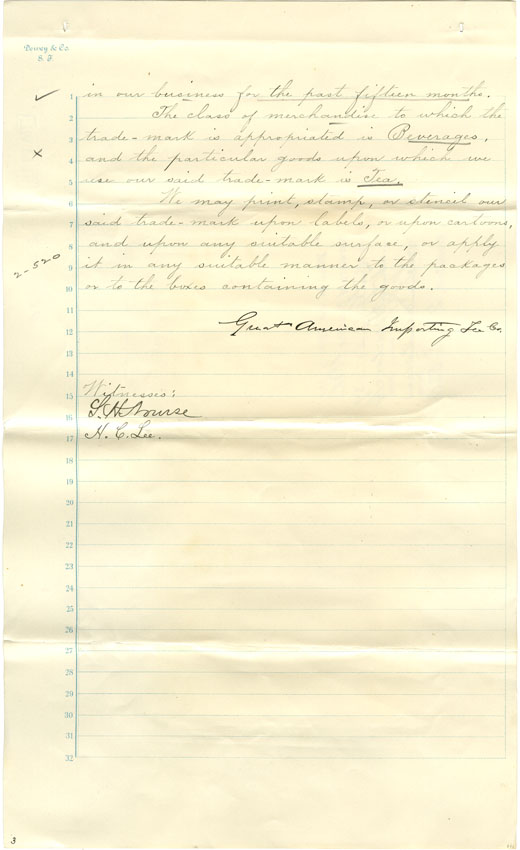 Dewey & Co
S. F.
1 in our business for the past fifteen months.
2 The class of merchandise to which the
3 trade-mark is appropriated is Beverages,
4 and the particular goods upon which we
5 use our said trade-mark is Tea.
6 We may print, stamp, or stencil our
7 said trade-mark upon labels, or upon cartoons,
8 and upon any suitable surface, or apply
9 it in any suitable manner to the packages
10 or to the boxes containing the goods.
2-520
11
12 Great American Importing Tea Co.
13
14
15 Witnesses:
16 G. H. Nourse
17 H. C. Lee.
18
19
20
21
22
23
24
25
26
27
28
29
30
31
32
3